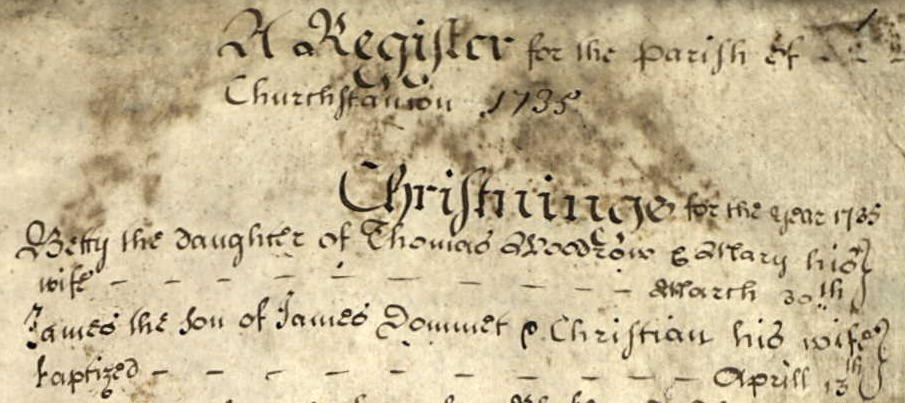 A Register for the Parish of
Churchstanton 1735
Christninge for the year 1735
Betty the Daughter of Thomas Woodrow & Mary his
wife - - - - - - - - - March 30th
James the Son of James Dommet & Christian his wife
baptized - - - - - - - - - Aprill 13th